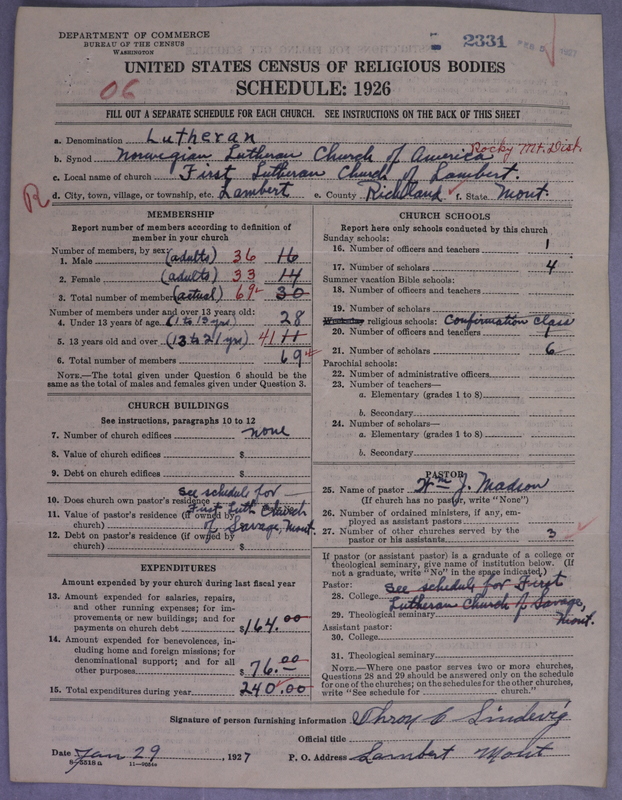 DEPARTMENT OF COMMERCE
BUREAU OF THE CENSUS
WASHINGTON
2331
UNITED STATES CENSUS OF RELIGIOUS BODIES
06
SCHEDULE: 1926
FILL OUT A SEPARATE SCHEDULE FOR EACH CHURCH. SEE INSTRUCTIONS ON THE BACK OF THIS SHEET
a. Denomination Lutheran
b. Synod Norwegian Lutheran Church of America Rocky Mt. Dist.
c. Local name of church First Lutheran Church of Lambert.
R
d. City, town, village, or township, etc. Lambert e. County Richland f. State Mont.
MEMBERSHIP
Report number of members according to definition of
member in your church
Number of members, by sex:
1. Male (adults) 36 16
2. Female (adults) 33 14
3. Total number of members (actual) 69 30
Number of members under and over 13 years old:
4. Under 13 years of age (1 to 13 yrs) 28
5. 13 years old and over (13 to 21 yrs) 41 11
6. Total number of members 69
NOTE.—The total given under Question 6 should be the
same as the total of males and females given under Question 3.
CHURCH BUILDINGS
See instructions, paragraphs 10 to 12
7. Number of church edifices none
8. Value of church edifices $
9. Debt on church edifices $
10. Does church own pastor's residence? See schedule for
11. Value of pastor's residence (if owned by
church) First Luth Church
12. Debt on pastor's residence (if owned by
church) $ of Savage, Mont.
EXPENDITURES
Amount expended by your church during last fiscal year
13. Amount expended for salaries, repairs,
and other running expenses; for im-
provements or new buildings; and for
payments on church debt $164.00
14. Amount expended for benevolences, in-
cluding home and foreign missions; for
denominational support; and for all
other purposes $76.00
15. Total expenditures during year 240.00
CHURCH SCHOOLS
Report here only schools conducted by this church
Sunday schools:
16. Number of officers and teachers 1
17. Number of scholars 4
Summer vacation Bible schools:
18. Number of officers and teachers
19. Number of scholars
religious schools: Confirmation class
20. Number of officers and teachers 1
21. Number of scholars 6
Parochial schools:
22. Number of administrative officers
23. Number of teachers—
a. Elementary (grades 1 to 8)
b. Secondary
24. Number of scholars—
a. Elementary (grades 1 to 8)
b. Secondary
PASTOR
25. Name of pastor Wm J. Madson
(If church has no pastor, write "None")
26. Number of ordained ministers, if any, em-
ployed as assistant pastors
27. Number of other churches served by the
pastor or his assistants 3
If pastor (or assistant pastor) is a graduate of a college or
theological seminary, give name of institution below. (If
not a graduate, write "No" in the space indicated.)
Pastor: See schedule for First
28. College Lutheran Church of Savage,
29. Theological seminary Mont.
Assistant pastor:
30. College
31. Theological seminary
NOTE.—Where one pastor serves two or more churches,
Questions 28 and 29 should be answered only on the schedule
for one of the churches; on the schedules for the other churches,
write "See schedule for church."
Signature of person furnishing information
Official title
Date Jan 29, 1927 P. O. Address Lambert Mont